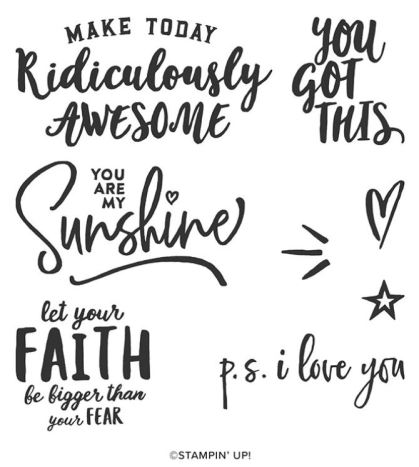 MAKE TODAY
Ridiculously
AWESOME
YOU
GOT
THIS
YOU
ARE
MY
Sunshine
let your
FAITH
be bigger than
your FEAR
p.s. i love you
©STAMPIN' UP!